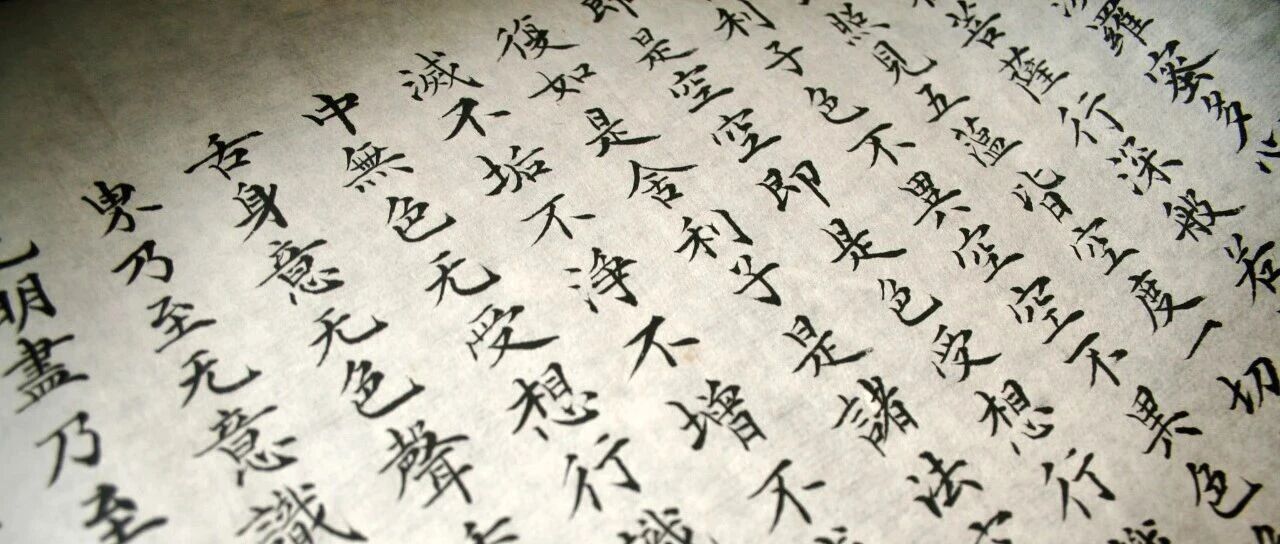 羅蜜多心
菩薩行深般若
照見五蘊皆空度一切
利子色不異空空不異色
即是空空即是色受想行識
復如是舍利子是諸法
滅不垢不淨不增不
中無色无受想行識
舌身意无色聲
界乃至无意識
明盡乃至